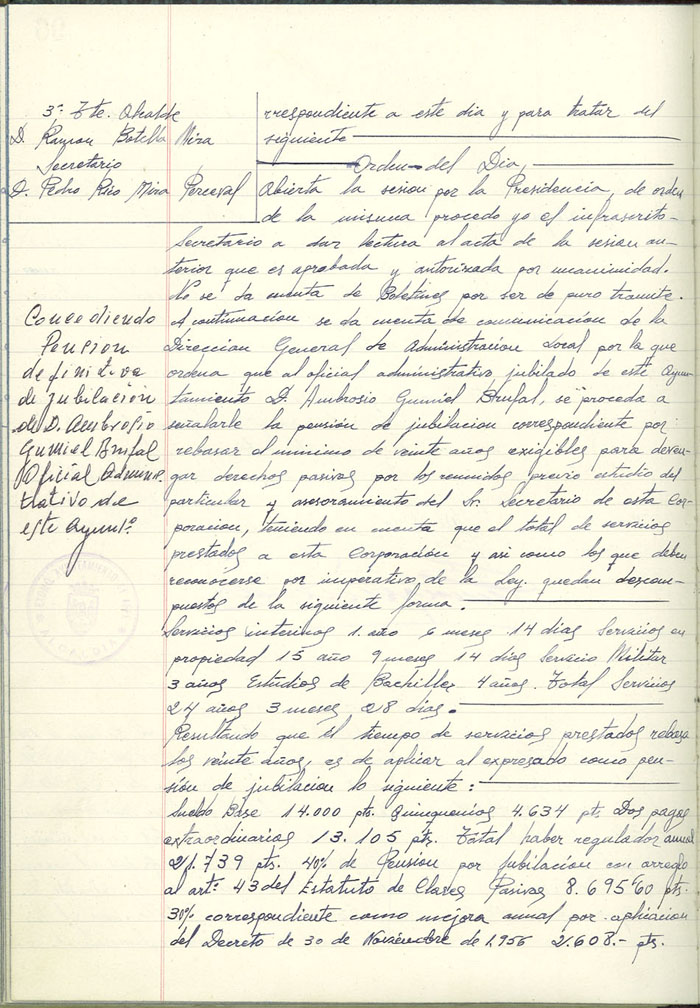 3º Tte. Alcalde
D. Ramon Botella Mira
Secretario
D. Pedro Rico Mira Perceval
rrespondiente a este dia y para tratar del
siguiente
Orden del Dia,
Abierta la sesion por la Presidencia, de orden
de la misma procedo yo el infrascrito
Secretario a dar lectura al acta de la sesion an-
terior que es aprobada y autorizada por unanimidad.
No se da cuenta de Boletines por ser de puro tramite.
Concediendo
Pension
definitiva
de jubilación
de D. Ambrosio
Gumiel Brufal
Oficial Adminis-
trativo de
este Ayuntº.
A continuación se da cuenta de comunicacion de la
Direccion General de Administración Local por la que
ordena que al oficial administrativo jubilado de este Ayun-
tamiento D. Ambrosio Gumiel Brufal, se proceda a
señalarle la pensión de jubilacion correspondiente por
rebasar el minimo de veinte años exigibles para deven-
gar derechos pasivos por los reunidos previo estudio del
particular y asesoramiento del Sr. Secretario de esta Cor-
poracion, teniendo en cuenta que el total de servicios
prestados a esta Corporación y asi como los que deben
reconocerse por imperativo de la Ley. quedan descom-
puestos de la siguiente forma.
Servicios interinos 1. año 6 meses 14 dias Servicios en
propiedad 15 año 9 meses 14 dias Servicio Militar
3 años Estudios de Bachiller 4 años. Total Servicios
24 años 3 meses 28 dias.
Resultando que el tiempo de servicios prestados rebasa
los veinte años, es de aplicar al expresado como pen-
sión de jubilacion lo siguiente:
Sueldo Base 14.000 pts. Quinquenios 4.634 pts. Dos pagas
extraordinarias 13.105 pts. Total haber regulador anual
21.739 pts. 40% de Pension por Jubilación con arreglo
al artº 43 del Estatuto de Clases Pasivas 8.695'60 pts.
30% correspondiente como mejora anual por aplicacion
del Decreto de 30 de Noviembre de 1.956 2.608.- pts.